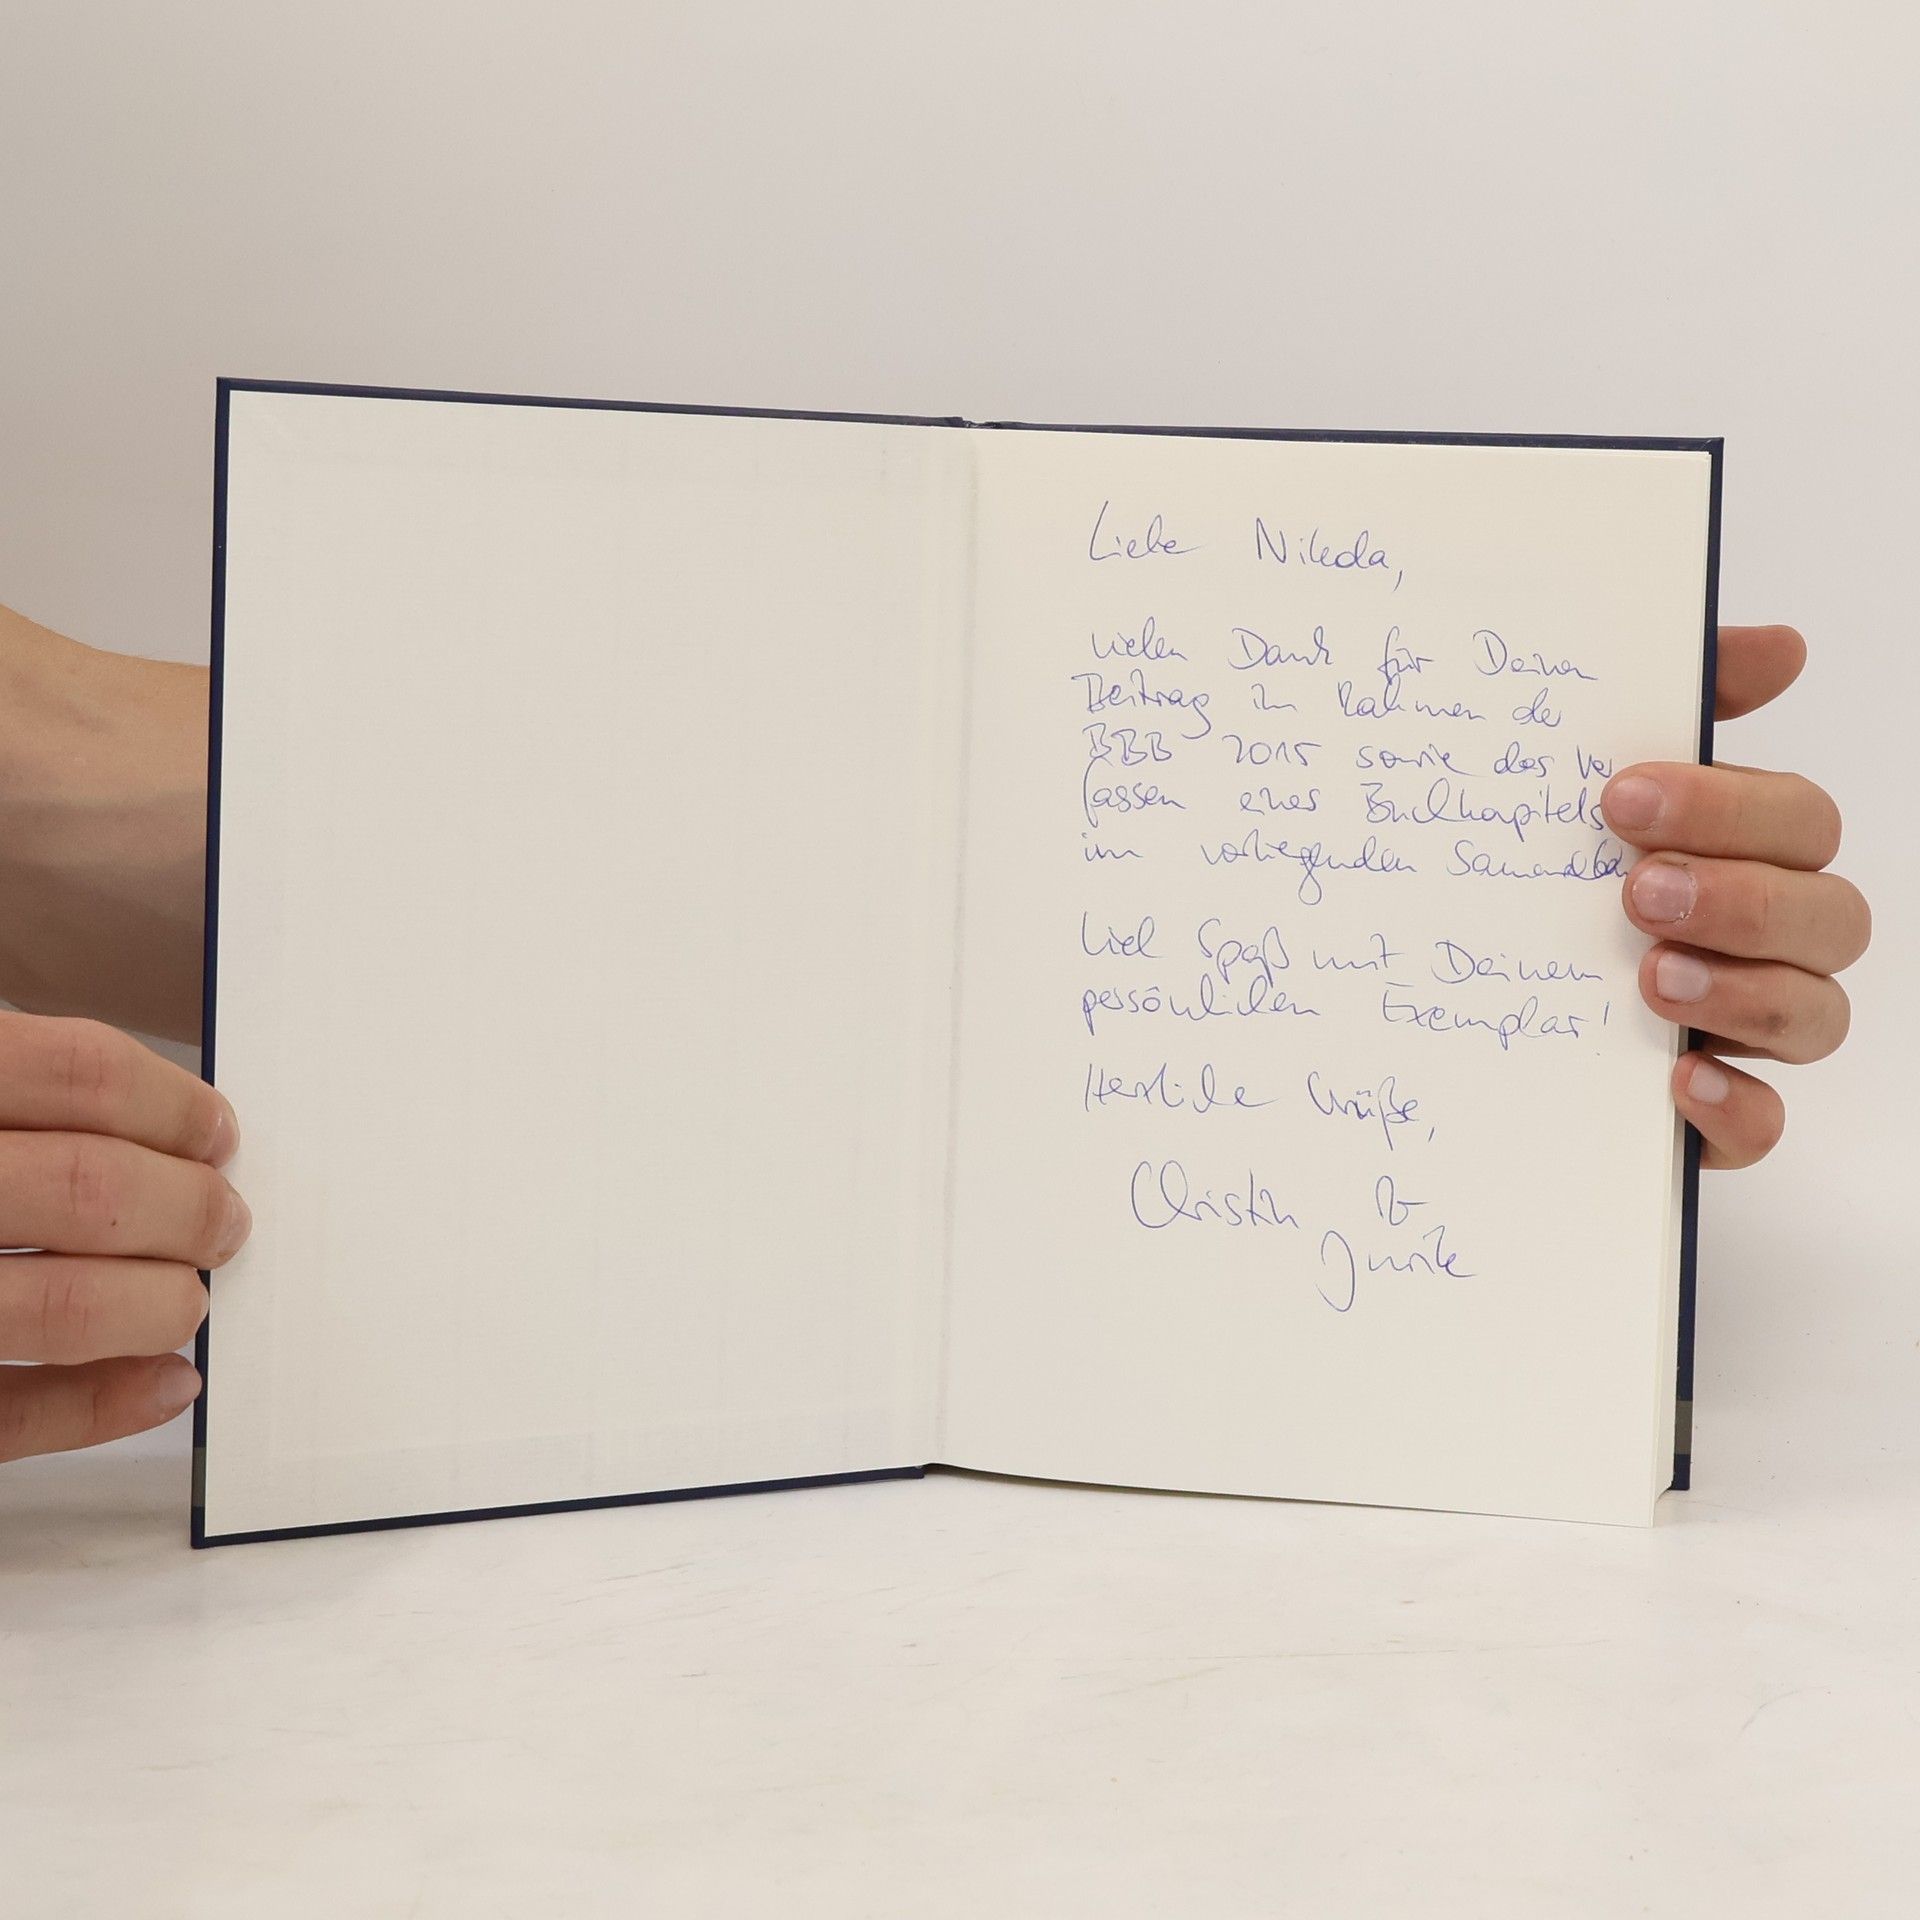 Liebe Nikola,
vielen Dank für Deinen
Beitrag im Rahmen der
BBB 2015 sowie das Ver
fassen eines Buchkapitels
im vorliegenden
Viel Spaß mit Deinem
persönlichen Exemplar!
Herzliche Grüße,
Christin &